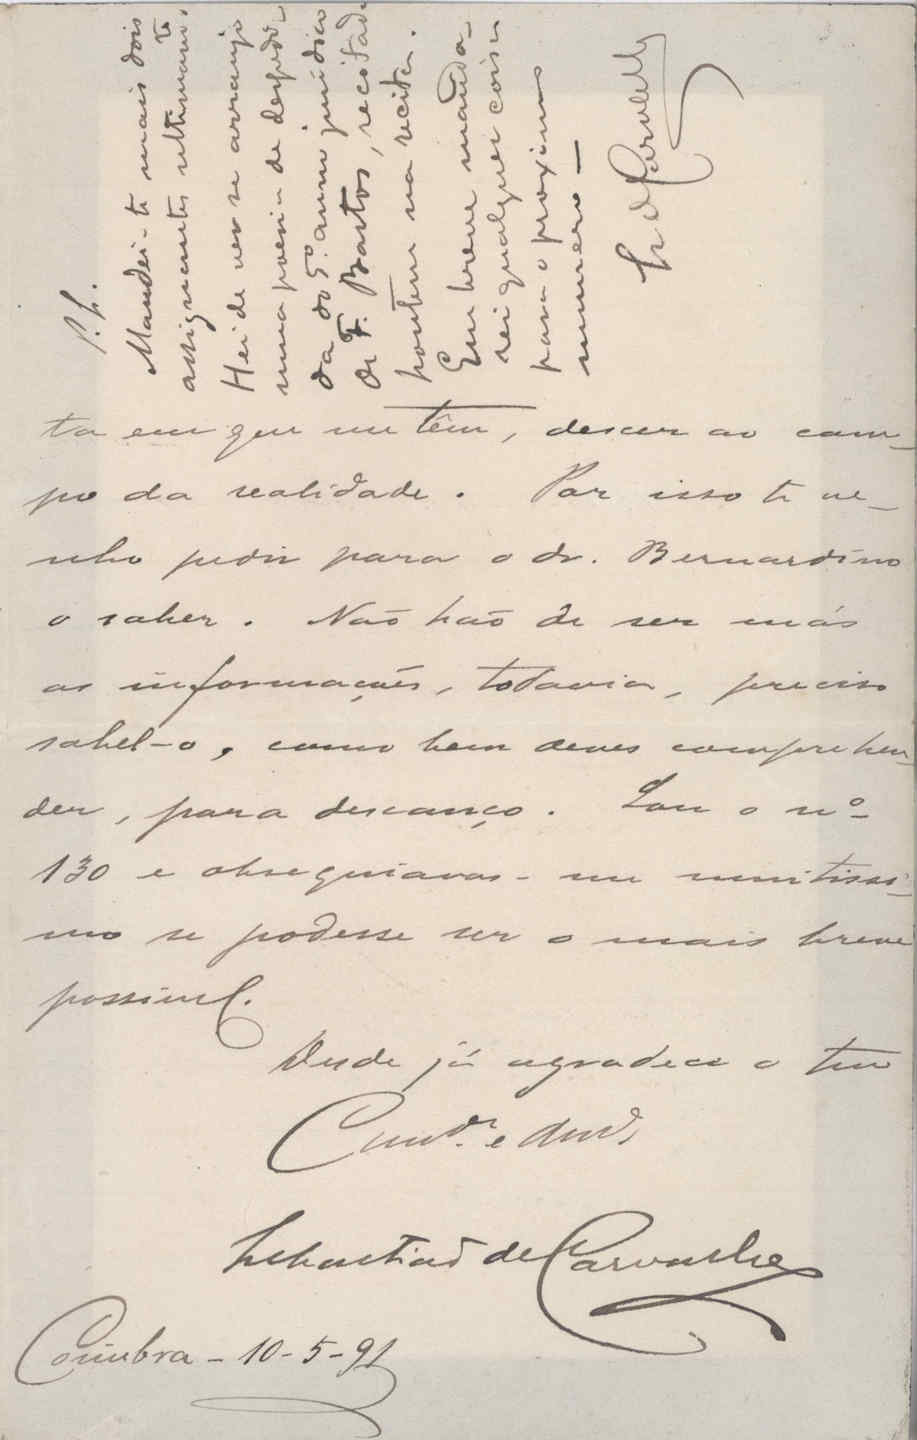 ta em que me têm, descer ao cam-
po da realidade. Por isso te ve-
nho pedir para o dr. Bernardino
o saber. Não hão de ser más
as informações, todavia, preciso
sabel-o, como bem deves comprehen-
der, para descanço. Sou o nº
130 e obsequiavas-me muitissi-
mo se podesse ser o mais breve
possivel.
Desde já agradece o teu
Cumdª. e Amº.
Sebastião de Carvalho
Coimbra - 10-5-91
P.S.
Mandei-te mais dois
assignantes ultimamte.
Hei de ver se arranjo
uma poesia de despedi-
da do 5º. anno juridico
de F. Bastos, recitada
hontem na recita.
Em breve manda-
rei qualquer coisa
para o proximo
numero —
S. de Carvalho